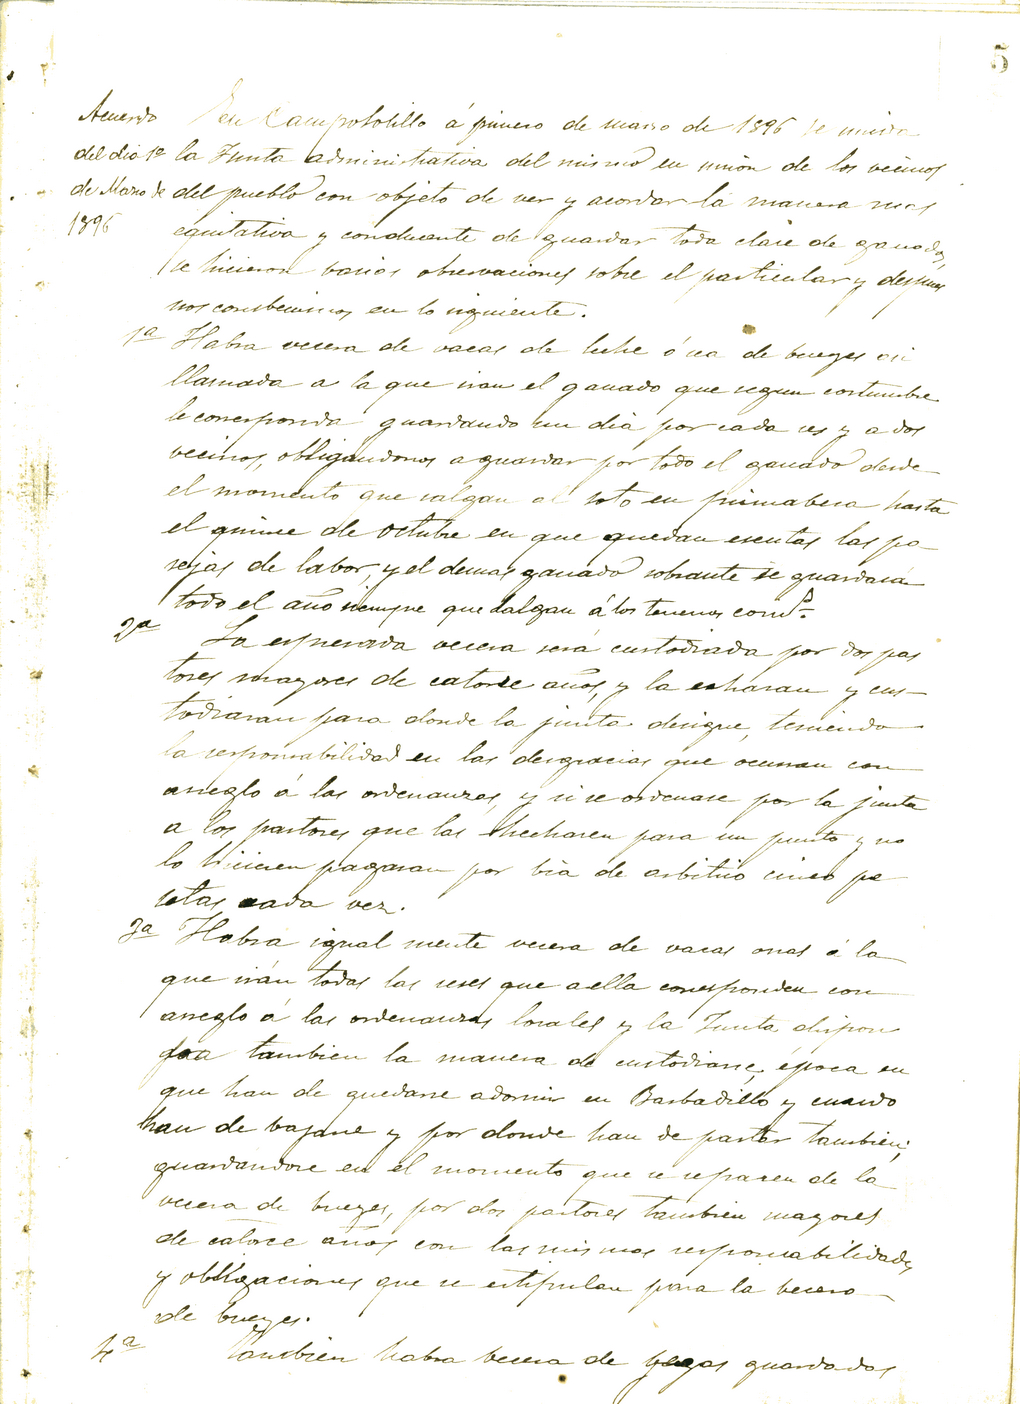 5
Acuerdo
del dia 1º
de Marzo de
1896
En Camposolillo á primero de marzo de 1896 se reunio
la Junta administrativa del mismo en union de los vecinos
del pueblo con objeto de ver y acordar la manera mas
equitativa y conducente de guardar toda clase de ganados,
se hicieron barias observaciones sobre el particular y despues
nos combenimos en lo siguiente.
1ª Habra vecera de vacas de leche ó sea de bueyes asi
llamada a la que iran el ganado que segun costumbre
le corresponda guardando un dia por cada res y a dos
vecinos, obligandonos a guardar por todo el ganado desde
el momento que salgan al soto en primabera hasta
el quince de octubre en que quedan esentas las pa
rejas de labor, y el demas ganado sobrante se guardará
todo el año siempre que salgan á los terrenos com.s
2ª La espresada vecera será custodiada por dos pas
tores mayores de catorce años, y la echaran y cus-
todiaran para donde la junta designe, teniendo
la responsabilidad en las desgracias que ocurran con
arreglo á las ordenanzas, y si se ordenase por la junta
a los pastores que las hecharen para un punto y no
lo hicieren pagaran por bia de arbitrio cinco pe
setas cada vez.
3ª Habra igual mente vecera de vacas á la
que irán todas las reses que a ella corresponden con
arreglo á las ordenanzas locales y la Junta dispon
dra tambien la manera de custodiarse, época en
que han de quedarse a dormir en Barbadillo y cuando
han de bajarse y por donde han de pastar tambien,
guardandose en el momento que se separen de la
vecera de bueyes, por dos pastores tambien mayores
de catorce años con las mismas responsabilidades
y obligaciones que se estipulan para la becera
de bueyes.
4ª Tambien habra becera de yeguas guardadas